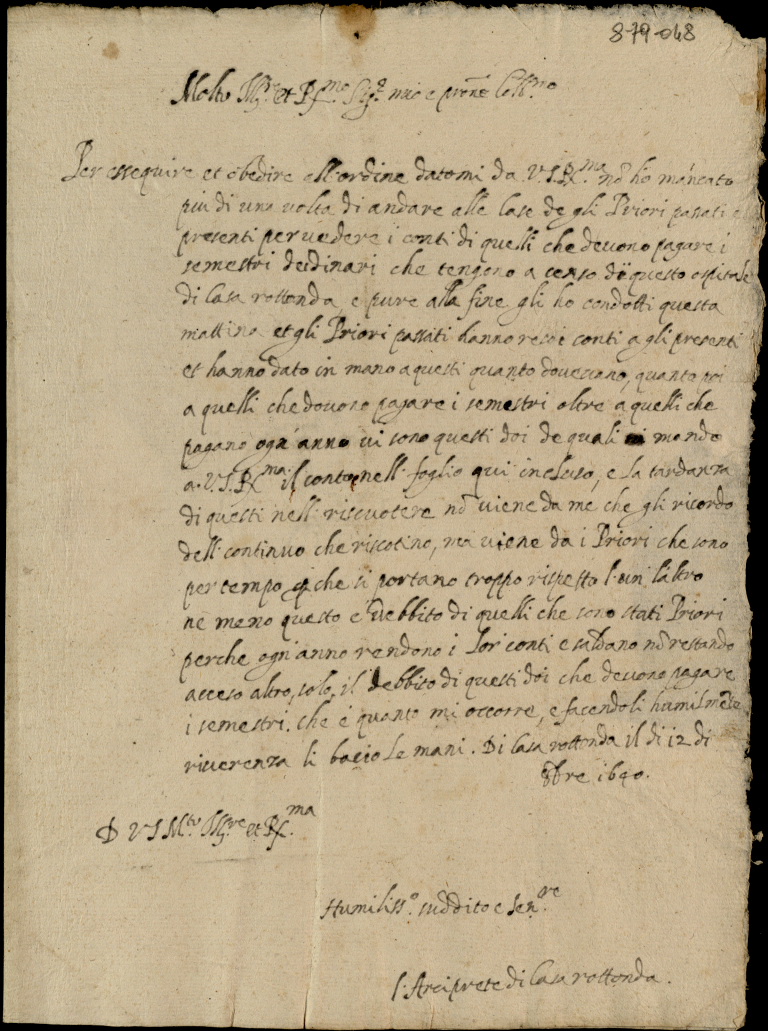 879-048
Molto Ill.re et R.mo Sig.r mio e prone Coll.mo
Per essequire et obedire all'ordine datomi da V.S.R.ma nō ho mancato
piu di una volta di andare alle Case de gli Priori passati e
presenti per vedere i conti di quelli che devono pagare i
semestri dei dinari che tengono a censo di questo ospitale
di Casa rottonda, e pure alla fine gli ho condotti questa
mattina et gli Priori passati hanno resoi conti a gli presenti
et hanno dato in mano a questi quanto dovevano, quanto poi
a quelli che devono pagare i semestri oltre a quelli che
pagano ogn'anno vi sono questi doi de quali mando
a V.S.R.ma il conto nell foglio qui incluso, e la tardanza
di questi nell riscuotere nō viene da me che gli ricordo
dell continuo che riscotino, ma viene da i Priori che sono
per tempo che si portano troppo rispetto l'un l'altro
ne meno questo e debbito di quelli che sono stati Priori
perche ogn'anno rendono i lor conti e saldano nō restando
acceso altro, solo il debbito di questi doi che devono pagare
i semestri. che é quanto mi occorre, e facendoli humilmēte
riverenza li bacio le mani. Di Casa rottonda il di 12 di
8bre 1640.
D V S M.to Ill.re et R.ma
Humiliss.o suddito e Ser.re
l'Arciprete di Casa rottonda.